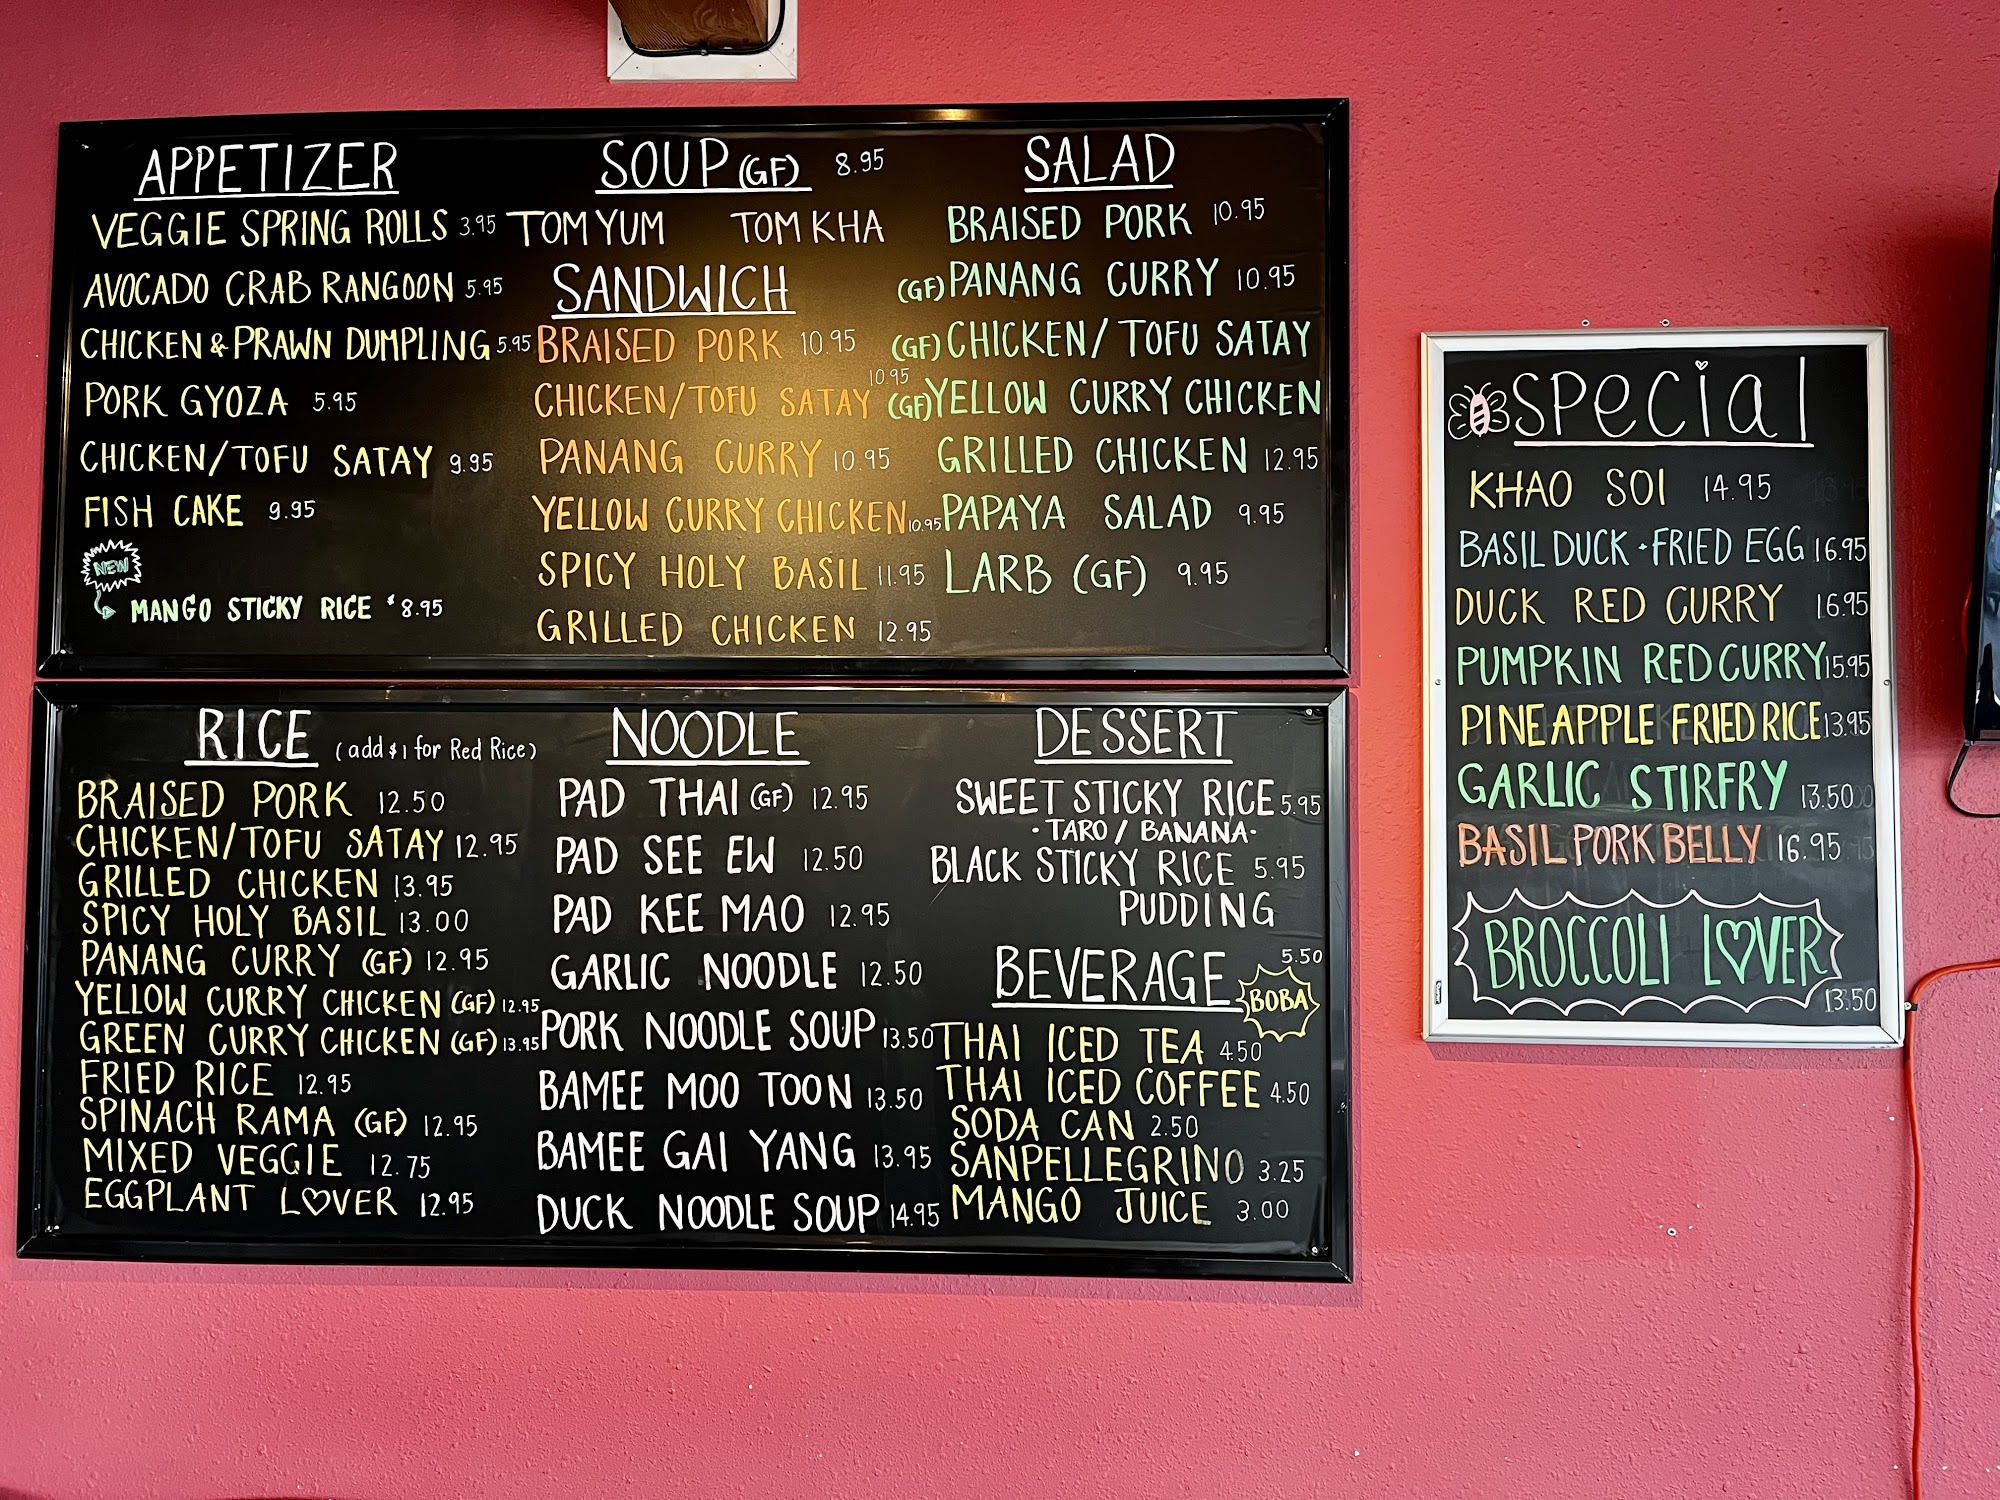 APPETIZER
VEGGIE SPRING ROLLS 3.95
AVOCADO CRAB RANGOON 5.95
CHICKEN & PRAWN DUMPLING 5.95
PORK GYOZA 5.95
CHICKEN/TOFU SATAY 9.95
FISH CAKE 9.95
NEW
MANGO STICKY RICE $8.95
SOUP (GF) 8.95
TOM YUM TOM KHA
SANDWICH
BRAISED PORK 10.95
CHICKEN/TOFU SATAY 10.95
PANANG CURRY 10.95
YELLOW CURRY CHICKEN 10.95
SPICY HOLY BASIL 11.95
GRILLED CHICKEN 12.95
SALAD
BRAISED PORK 10.95
(GF) PANANG CURRY 10.95
(GF) CHICKEN/TOFU SATAY
(GF) YELLOW CURRY CHICKEN
GRILLED CHICKEN 12.95
PAPAYA SALAD 9.95
LARB (GF) 9.95
RICE (add $1 for Red Rice)
BRAISED PORK 12.50
CHICKEN/TOFU SATAY 12.95
GRILLED CHICKEN 13.95
SPICY HOLY BASIL 13.00
PANANG CURRY (GF) 12.95
YELLOW CURRY CHICKEN (GF) 12.95
GREEN CURRY CHICKEN (GF) 13.95
FRIED RICE 12.95
SPINACH RAMA (GF) 12.95
MIXED VEGGIE 12.75
EGGPLANT L♡VER 12.95
NOODLE
PAD THAI (GF) 12.95
PAD SEE EW 12.50
PAD KEE MAO 12.95
GARLIC NOODLE 12.50
PORK NOODLE SOUP 13.50
BAMEE MOO TOON 13.50
BAMEE GAI YANG 13.95
DUCK NOODLE SOUP 14.95
DESSERT
SWEET STICKY RICE 5.95
·TARO / BANANA·
BLACK STICKY RICE 5.95
PUDDING
BEVERAGE
5.50
BOBA
THAI ICED TEA 4.50
THAI ICED COFFEE 4.50
SODA CAN 2.50
SANPELLEGRINO 3.25
MANGO JUICE 3.00
SPeCial
KHAO SOI 14.95
BASIL DUCK · FRIED EGG 16.95
DUCK RED CURRY 16.95
PUMPKIN RED CURRY 15.95
PINEAPPLE FRIED RICE 13.95
GARLIC STIRFRY 13.50
BASIL PORK BELLY 16.95
BROCCOLI L♡VER
13.50